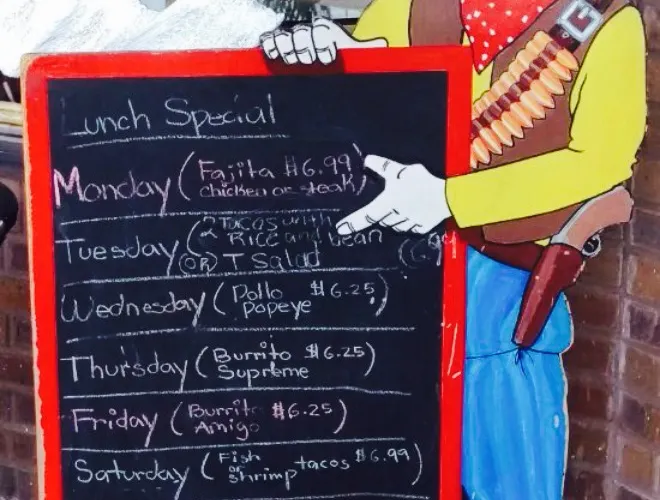 Lunch Special
Monday (Fajita $6.99
chicken or steak)
2 Tacos with
Tuesday (Rice and bean
(OR) T Salad
Wednesday (Pollo $6.25)
Popeye
Thursday (Burrito $6.25)
Supreme
Friday (Burrit $6.25)
Amigo
Saturday (Fish
or
shrimp tacos $6.99)